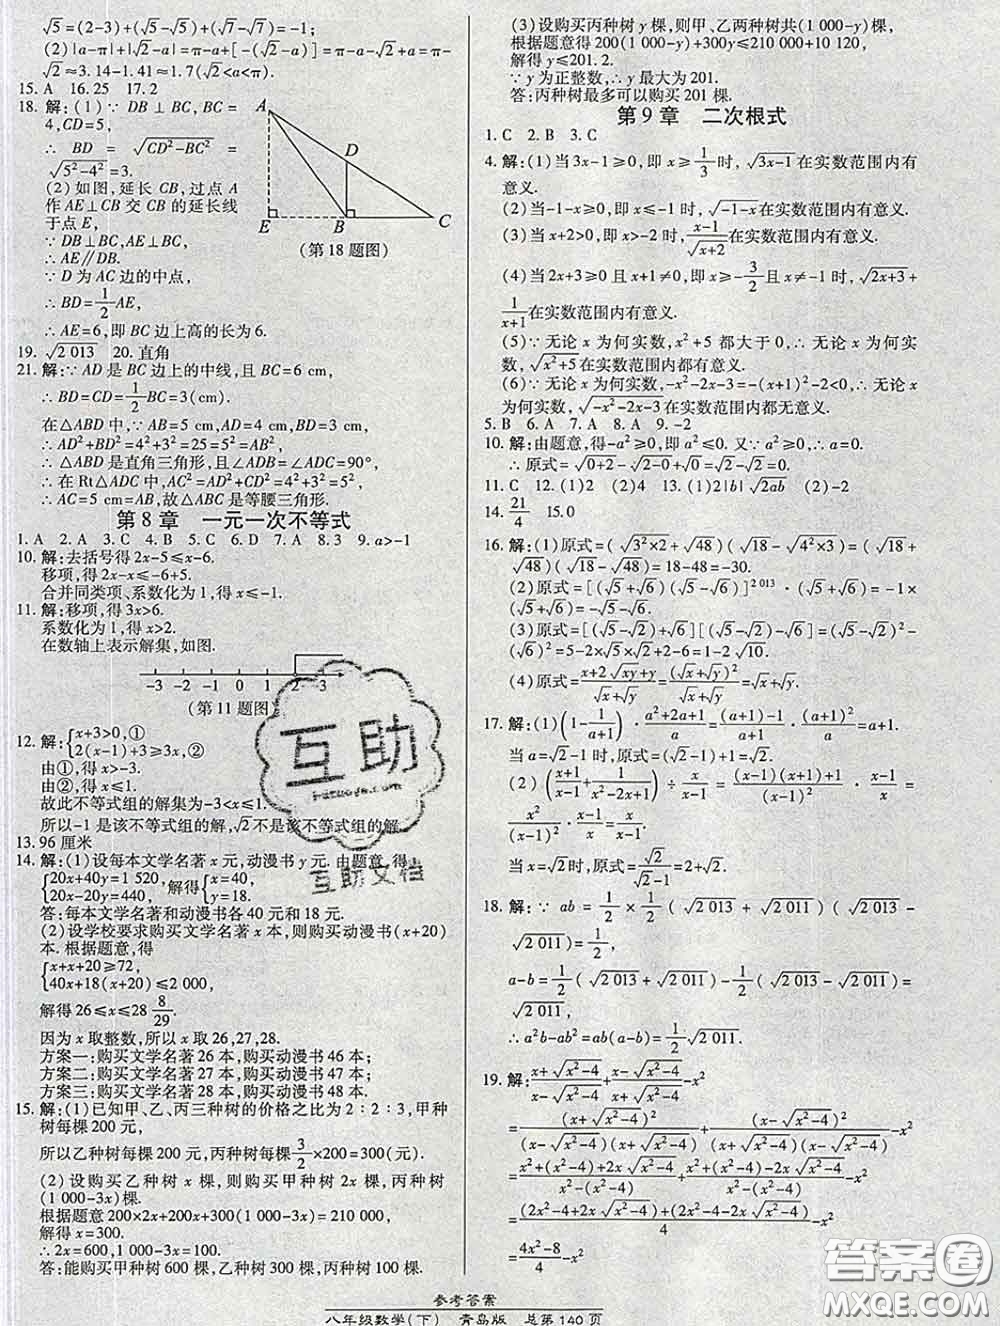 √5=(2-3)+(√5-√5)+(√7-√7)=-1;
(2)|a-π|+|√2-a|=π-a+[-(√2-a)]=π-a-√2+a=π-
√2≈3.14-1.41≈1.7(√2<a<π).
15. A 16.25 17.2
18. 解:(1)∵ DB⊥BC, BC=
4,CD=5,
∴ BD = √(CD²-BC²) =
√(5²-4²)=3.
(2)如图,延长CB,过点A
作AE⊥CB交CB的延长线
于点E,
∵DB⊥BC,AE⊥BC,
∴AE∥DB.
∵D为AC边的中点,
∴BD=1/2 AE,
∴AE=6,即BC边上高的长为6.
A
D
E
B
C
(第18题图)
19. √2 013 20. 直角
21. 解:∵AD是BC边上的中线,且BC=6 cm,
∴BD=CD=1/2 BC=3(cm).
在△ABD中,∵AB=5 cm,AD=4 cm,BD=3 cm,
∴AD²+BD²=4²+3²=25=5²=AB²,
∴△ABD是直角三角形,且∠ADB=∠ADC=90°,
∴在Rt△ADC中,AC²=AD²+CD²=4²+3²=5²,
∴AC=5 cm=AB,故△ABC是等腰三角形.
第8章 一元一次不等式
1. A 2. A 3. C 4. B 5. C 6. D 7. A 8.3 9. a>-1
10. 解:去括号得2x-5≤x-6.
移项,得2x-x≤-6+5.
合并同类项、系数化为1,得x≤-1.
11. 解:移项,得3x>6.
系数化为1,得x>2.
在数轴上表示解集,如图.
-3 -2 -1 0 1 2 3
(第11题图)
12. 解:{x+3>0,①
2(x-1)+3≥3x,②
由①,得x>-3.
由②,得x≤1.
故此不等式组的解集为-3<x≤1.
所以-1是该不等式组的解,√2不是该不等式组的解.
13. 96厘米
14. 解:(1)设每本文学名著x元,动漫书y元.由题意,得
{20x+40y=1 520, 解得{x=40,
20x-20y=440, y=18.
答:每本文学名著和动漫书各40元和18元.
(2)设学校要求购买文学名著x本,则购买动漫书(x+20)
本.根据题意,得
{x+x+20≥72,
40x+18(x+20)≤2 000,
解得26≤x≤28 8/29.
因为x取整数,所以x取26,27,28.
方案一:购买文学名著26本,购买动漫书46本;
方案二:购买文学名著27本,购买动漫书47本;
方案三:购买文学名著28本,购买动漫书48本.
15. 解:(1)已知甲、乙、丙三种树的价格之比为2:2:3,甲种
树每棵200元,
所以乙种树每棵200元,丙种树每棵3/2×200=300(元).
(2)设购买乙种树x棵,则购买甲种树2x棵,丙种树
(1 000-3x)棵.
根据题意200×2x+200x+300(1 000-3x)=210 000,
解得x=300.
∴2x=600,1 000-3x=100.
答:能购买甲种树600棵,乙种树300棵,丙种树100棵.
(3)设购买丙种树y棵,则甲、乙两种树共(1 000-y)棵,
根据题意得200(1 000-y)+300y≤210 000+10 120,
解得y≤201.2.
∵y为正整数,∴y最大为201.
答:丙种树最多可以购买201棵.
第9章 二次根式
1. C 2. B 3. C
4. 解:(1)当3x-1≥0,即x≥1/3时,√(3x-1)在实数范围内有
意义.
(2)当-1-x≥0,即x≤-1时,√(-1-x)在实数范围内有意义.
(3)当x+2>0,即x>-2时,(x-1)/√(x+2)在实数范围内有意义.
(4)当2x+3≥0且x+1≠0,即x≥-3/2且x≠-1时,√(2x+3)+
1/(x+1)在实数范围内有意义.
(5)∵无论x为何实数,x²+5都大于0,∴无论x为何实
数,√(x²+5)在实数范围内都有意义.
(6)∵无论x为何实数,-x²-2x-3=-(x+1)²-2<0,∴无论
x为何实数,√(-x²-2x-3)在实数范围内都无意义.
5. B 6. A 7. A 8. A 9. -2
10. 解:由题意,得-a²≥0,即a²≤0.又∵a²≥0,∴a=0.
∴原式=√(0+2)-√(2-0)+√0=√2-√2=0.
11. C 12. (1)2 (2)6 13. (1)2|b|√(2ab) (2)-2
14. 21/4 15.0
16. 解:(1)原式=(√(3²×2)+√48)(√18-√(4²×3))=(√18+
√48)(√18-√48)=18-48=-30.
(2)原式=[(√5+√6)(√5-√6)]^2 013·(-1)×
(√5+√6)=-√5-√6.
(3)原式=[(√5-√2)+√6][(√5-√2)-√6]=(√5-√2)²-
(√6)²=5-2×√5×√2+2-6=1-2√10.
(4)原式=(x+2√(xy)+y)/(√x+√y)=(√x+√y)²/(√x+√y)=√x+√y.
17. 解:(1)(1-1/(a+1))·(a²+2a+1)/a=((a+1)-1)/(a+1)·(a+1)²/a=a+1.
当a=√2-1时,原式=(√2-1)+1=√2.
(2)((x+1)/(x-1)+1/(x²-2x+1))÷x/(x-1)=((x-1)(x+1)+1)/(x-1)²·(x-1)/x=
x²/(x-1)²·(x-1)/x=x/(x-1).
当x=√2时,原式=√2/(√2-1)=2+√2.
18. 解:∵ab=1/2×1/2(√2 013+√2 011)(√2 013-
√2 011)=1/2,
a-b=1/2(√2 013+√2 011)-1/2(√2 013-√2 011)=
√2 011,
∴a²b-ab²=ab(a-b)=1/2√2 011.
19. 解:(x+√(x²-4))/(x-√(x²-4))+(x-√(x²-4))/(x+√(x²-4))-x²
=(x+√(x²-4))²/((x-√(x²-4))(x+√(x²-4)))+(x-√(x²-4))²/((x+√(x²-4))(x-√(x²-4)))-x²
=(x²+(x²-4)+2x√(x²-4))/4+(x²+(x²-4)-2x√(x²-4))/4-x²
=((2x²-4+2x√(x²-4))+(2x²-4-2x√(x²-4)))/4-x²
=(4x²-8)/4-x²
互助
互助文档
答案圈
MXQE.COM
参考答案
八年级数学(下) 青岛版 总第140页